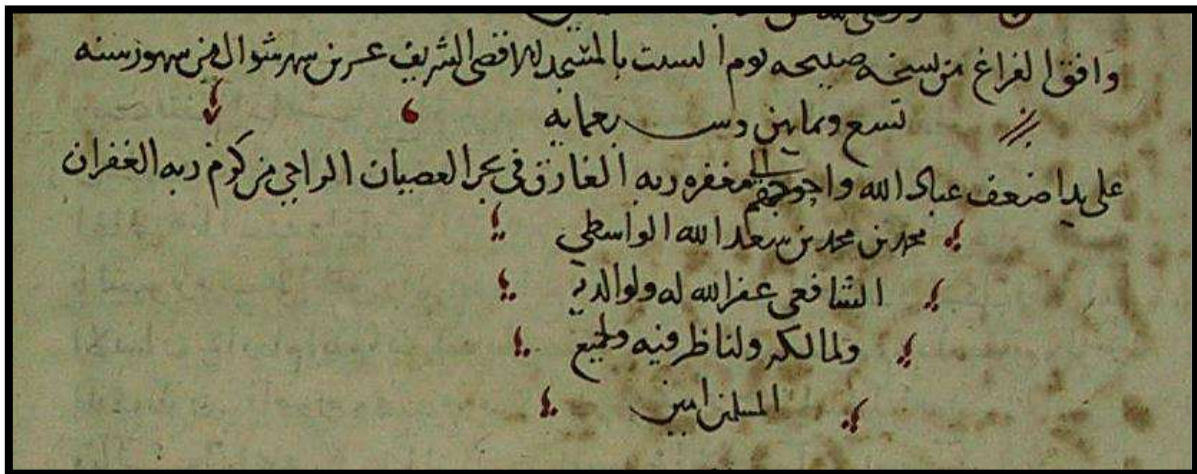 وافق الفراغ من نسخه صبيحه يوم السبت بالمسجد الاقصى الشريف عشرين شهر شوال من شهور سنه
تسع وثمانين وسبعمايه
على يد اضعف عباد الله واحوجهم الى مغفره ربه الغارق في بحر العصيان الراجي من كرم ربه الغفران
محمد بن محمد بن سعد الله الواسطي
الشافعي غفر الله له ولوالديه
ولمالكه ولناظر فيه ولجميع
المسلمين امين